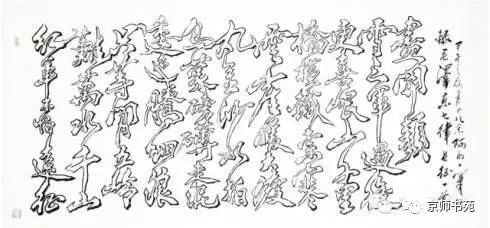 紅軍不怕遠征
難萬水千山
只等閑五嶺
逶迤騰細浪
烏蒙磅礴走泥
丸金沙水拍
雲崖暖大渡
橋橫鐵索寒
更喜岷山千里
雪三軍過後
盡開顏
錄毛澤東七律長征一首
京师书苑